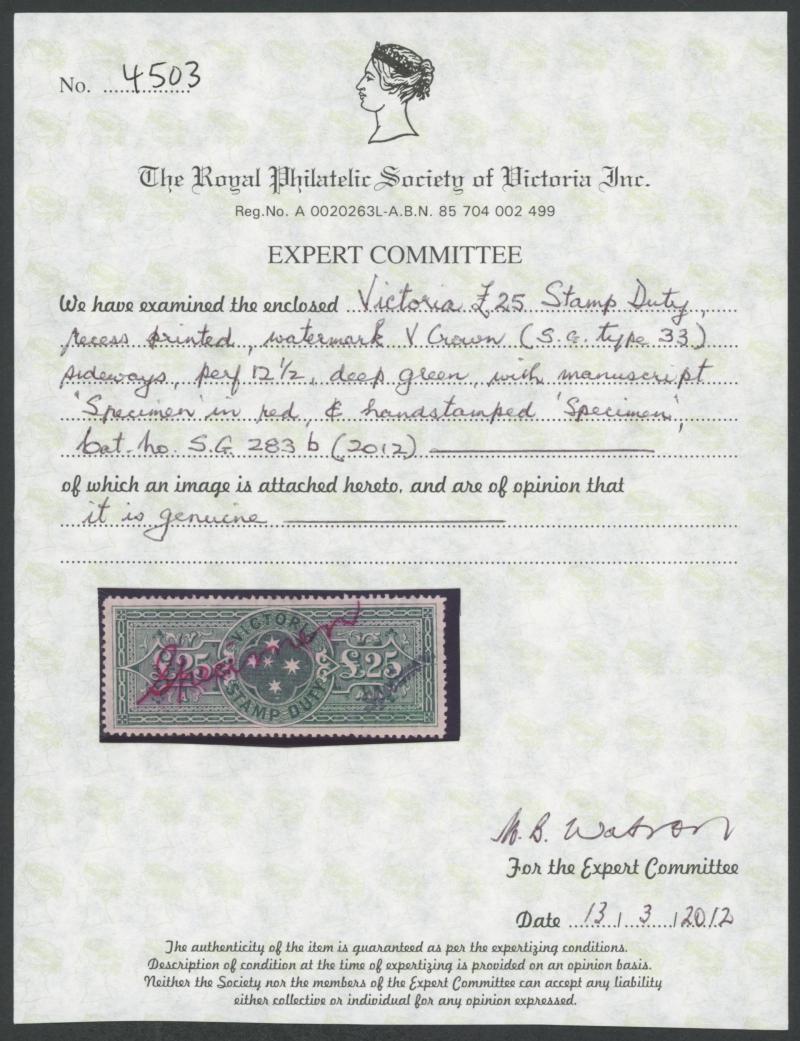 No. 4503
The Royal Philatelic Society of Victoria Inc.
Reg.No. A 0020263L-A.B.N. 85 704 002 499
EXPERT COMMITTEE
We have examined the enclosed Victoria £25 Stamp Duty,
recess printed, watermark V Crown (S.G. type 33)
sideways, perf 12 1/2, deep green, with manuscript
'Specimen' in red, & handstamped 'Specimen',
Cat. no. S.G. 283 b (2012)
of which an image is attached hereto, and are of opinion that
it is genuine
VICTORIA
£25 £25
STAMP DUTY
Specimen
M. B. Watson
For the Expert Committee
Date 13 / 3 / 2012
The authenticity of the item is guaranteed as per the expertizing conditions.
Description of condition at the time of expertizing is provided on an opinion basis.
Neither the Society nor the members of the Expert Committee can accept any liability
either collective or individual for any opinion expressed.